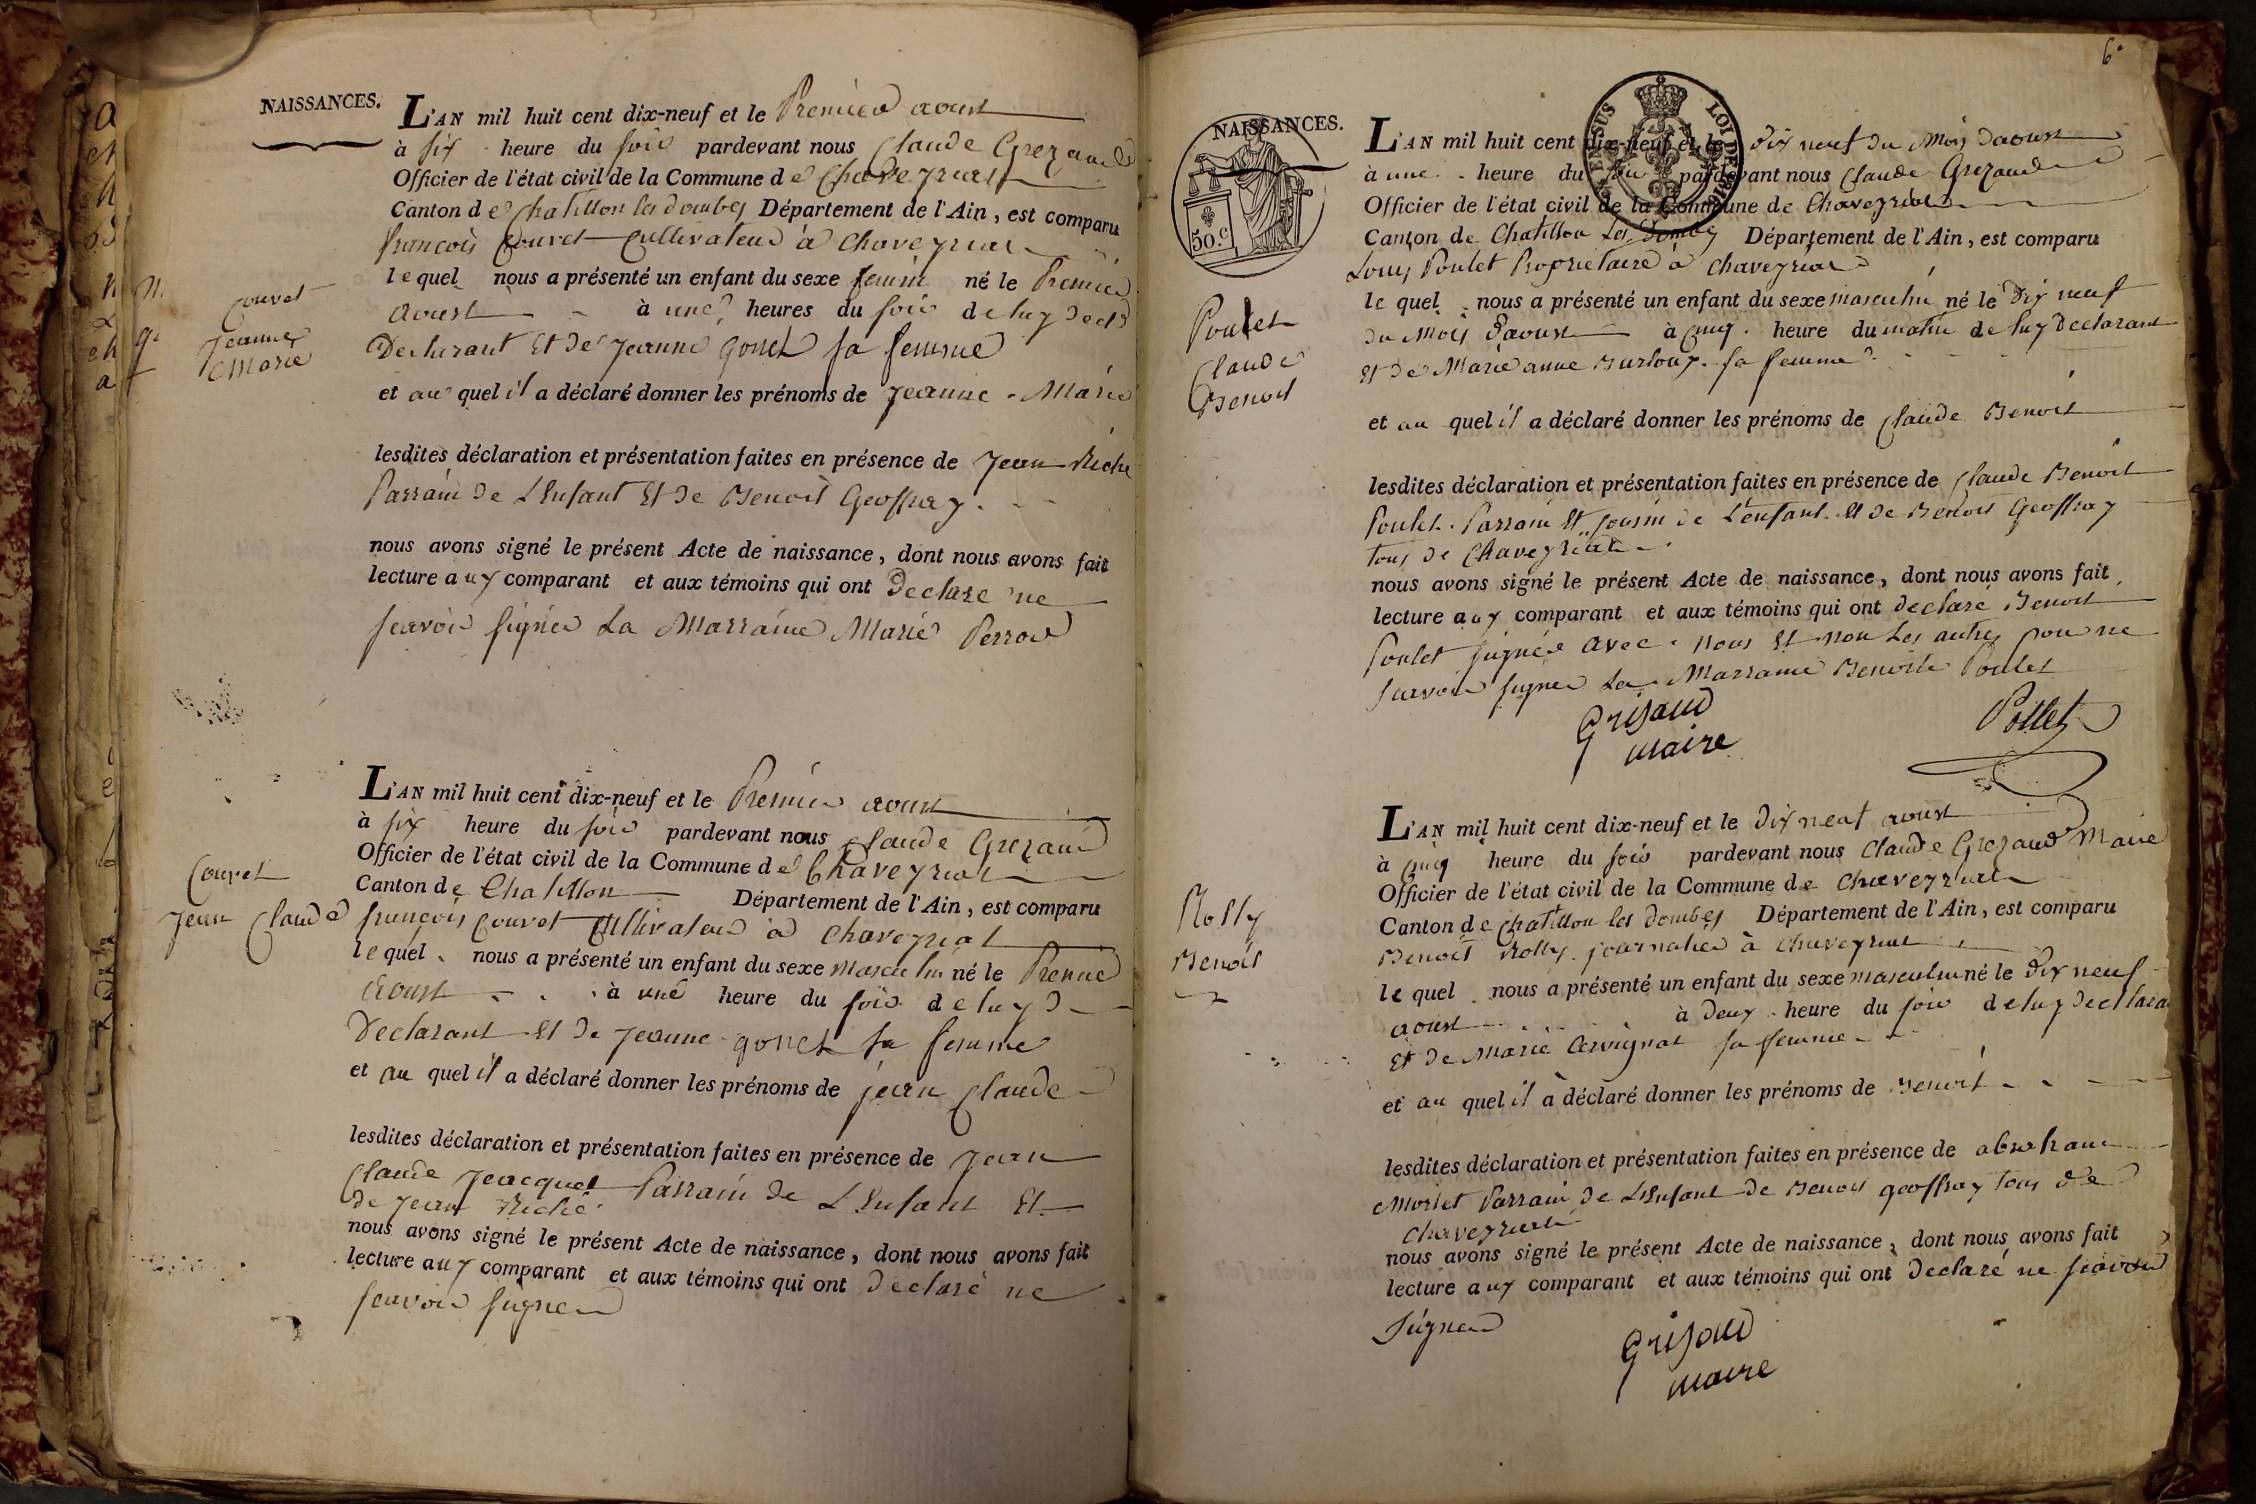 NAISSANCES.
L'AN mil huit cent dix-neuf et le Premier aoust
à six heure du soir pardevant nous Claude Grezaud
Officier de l'état civil de la Commune de Chaveyriat
Canton de Chatillon les dombes Département de l'Ain, est comparu
françois Couvet Cultivateur à Chaveyriat
lequel nous a présenté un enfant du sexe feminin né le Premier
aoust à une heures du soir de luy
Declarant Et de Jeanne gonet sa femme
et au quel il a déclaré donner les prénoms de Jeanne - Marie
Couvet
Jeanne
Marie
lesdites déclaration et présentation faites en présence de Jean Riche
Parrain de L'Enfant Et de Benoit Geoffray.
nous avons signé le présent Acte de naissance, dont nous avons fait
lecture aux comparant et aux témoins qui ont Declaré ne
scavoir signer La Marraine Marie Perroud
L'AN mil huit cent dix-neuf et le Premier aoust
à six heure du soir pardevant nous Claude Grezaud
Officier de l'état civil de la Commune de Chaveyriat
Canton de Chatillon Département de l'Ain, est comparu
françois Couvet Cultivateur à Chaveyriat
lequel nous a présenté un enfant du sexe Masculin né le Premier
aoust à une heure du soir de luy D
Declarant Et De Jeanne gonet sa femme
et au quel il a déclaré donner les prénoms de jean Claude
Couvet
Jean Claude
lesdites déclaration et présentation faites en présence de Jean
Claude Jeacquet Parrain de L'Enfant Et
de Jean Riche.
nous avons signé le présent Acte de naissance, dont nous avons fait
lecture aux comparant et aux témoins qui ont Declaré ne
scavoir signer
6
NAISSANCES.
50.c
SUSPENSUS LOI DE 1816
L'AN mil huit cent dix-neuf et le Dix neuf du Mois Daoust
à une heure du soir pardevant nous Claude Grezaud
Officier de l'état civil de la Commune de Chaveyriat
Canton de Chatillon Les Dombes Département de l'Ain, est comparu
Louis Poulet Proprietaire à Chaveyriat
lequel nous a présenté un enfant du sexe masculin né le Dix neuf
du Mois Daoust à cinq heure du matin de luy Declarant
Et de Marie anne Burloux sa femme
et au quel il a déclaré donner les prénoms de Claude Benoit
Poulet
Claude
Benoit
lesdites déclaration et présentation faites en présence de Claude Benoit
Poulet Parrain Et Cousin de L'enfant Et de Benoit Geoffray
tous de Chaveyriat
nous avons signé le présent Acte de naissance, dont nous avons fait
lecture aux comparant et aux témoins qui ont Declaré Benoit
Poulet signée avec nous Et non Les autres pour ne
scavoir signer La Marraine Benoite Poulet
Grisaud Pollet
maire
L'AN mil huit cent dix-neuf et le dix neuf aoust
à cinq heure du soir pardevant nous Claude Grezaud Maire
Officier de l'état civil de la Commune de Chaveyriat
Canton de Chatillon les dombes Département de l'Ain, est comparu
Benoit Rolly journalier à Chaveyriat
lequel nous a présenté un enfant du sexe masculin né le Dix neuf
aoust à deux heure du soir de luy declara
Et de Marie Cervignat sa femme
et au quel il a déclaré donner les prénoms de Benoit
Rolly
Benoit
lesdites déclaration et présentation faites en présence de abraham
Morlet Parrain De L'Enfant de Benoit geoffray tous de
Chaveyriat
nous avons signé le présent Acte de naissance, dont nous avons fait
lecture aux comparant et aux témoins qui ont Declaré ne scavoir
Signer
Grisaud
maire